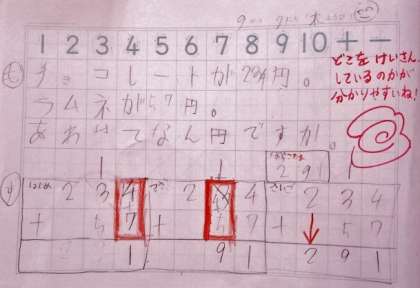 1 2 3 4 5 6 7 8 9 10 + −
チョコレートが234円。
ラムネが57円。
あわせてなん円ですか。
どこをけいさん
しているのかが
分かりやすいね!
291
1 1
はじめ 2 3 4 つぎ 2 3 4 さいご 2 3 4
+ 5 7 + 5 7 + 5 7
1 9 1 2 9 1